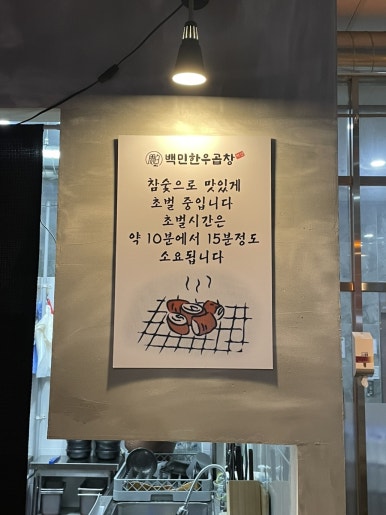 백민한우곱창
참숯으로 맛있게
초벌 중입니다
초벌시간은
약 10분에서 15분정도
소요됩니다